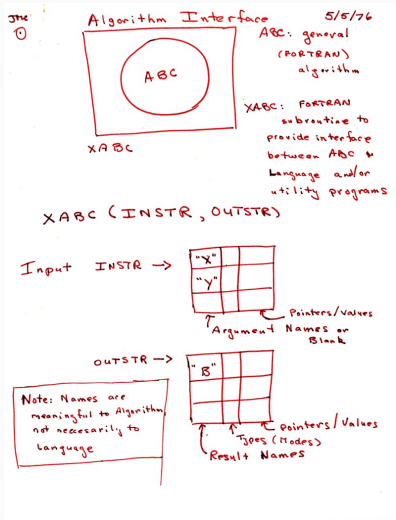 Algorithm Interface 5/5/76
ABC: general
(FORTRAN)
algorithm
ABC
XABC
XABC: FORTRAN
subroutine to
provide interface
between ABC &
Language and/or
utility programs
XABC (INSTR, OUTSTR)
Input INSTR →
"X"
"Y"
Pointers/Values
Argument Names or
Blank
OUTSTR →
"B"
Pointers/Values
Types (Modes)
Result Names
Note: Names are
meaningful to Algorithm,
not neccesarily to
Language